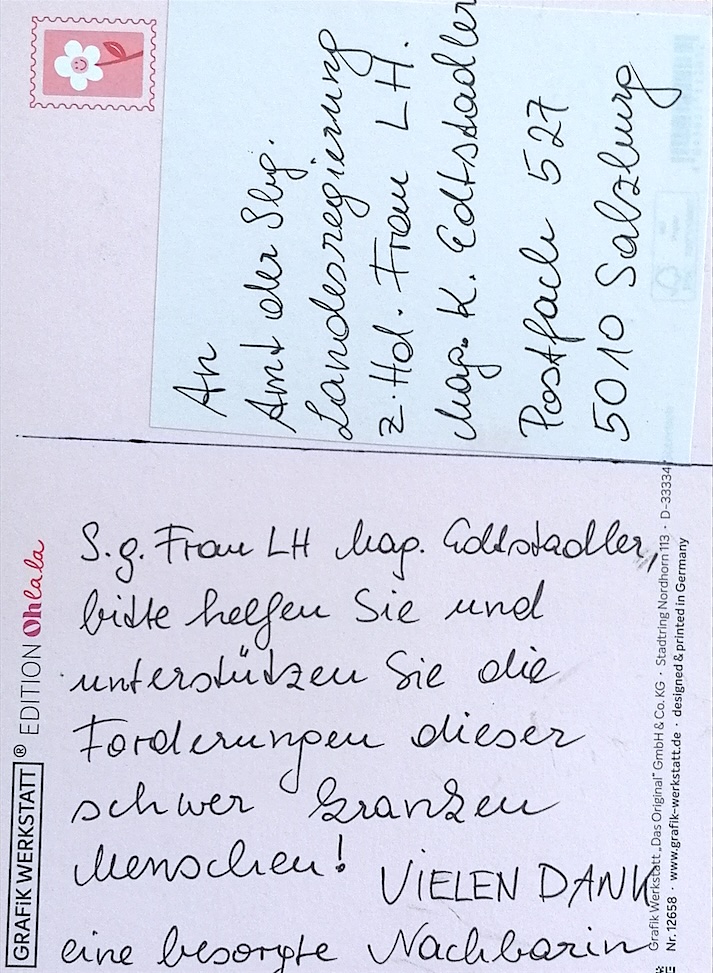 An
Amt der Sbg.
Landesregierung
z. Hd. Frau LH.
Mag. K. Edtstadler
Postfach 527
5010 Salzburg
S.g. Frau LH Mag. Edtstadler,
bitte helfen Sie und
unterstützen Sie die
Forderungen dieser
schwer kranken
Menschen!
VIELEN DANK
eine besorgte Nachbarin
GRAFiK WERKSTATT® EDITION Ohlala
Grafik Werkstatt „Das Original" GmbH & Co. KG · Stadtring Nordhorn 113 · D-33334
Nr. 12658 · www.grafik-werkstatt.de · designed & printed in Germany